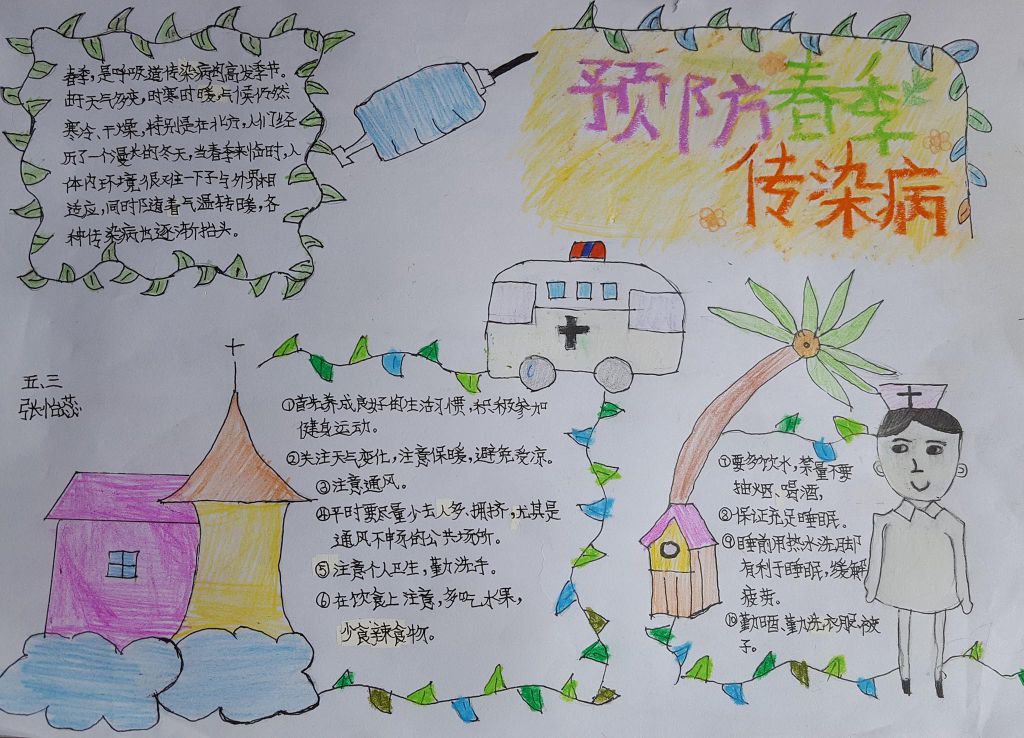 预防春季
传染病
春季，是呼吸道传染病的高发季节。
由于天气多变，时寒时暖，气候仍然
寒冷、干燥，特别是在北方，人们了经
历了一个漫长的冬天，当春季来临时，人
体内环境很难一下子与外界相
适应，同时随着气温转暖，各
种传染病也逐渐抬头。
五、三
张怡蕊
①首先养成良好的生活习惯，积极参加
健身运动。
②关注天气变化，注意保暖，避免受凉。
③注意通风。
④平时要尽量少去人多、拥挤，尤其是
通风不畅的公共场所。
⑤注意个人卫生，勤洗手。
⑥在饮食上注意，多吃水果，
少食辣食物。
⑦要多饮水，禁量不要
抽烟、喝酒，
⑧保证充足睡眠。
⑨睡前用热水洗脚
有利于睡眠，缓解
疲劳。
⑩勤晒、勤洗衣服被
子。